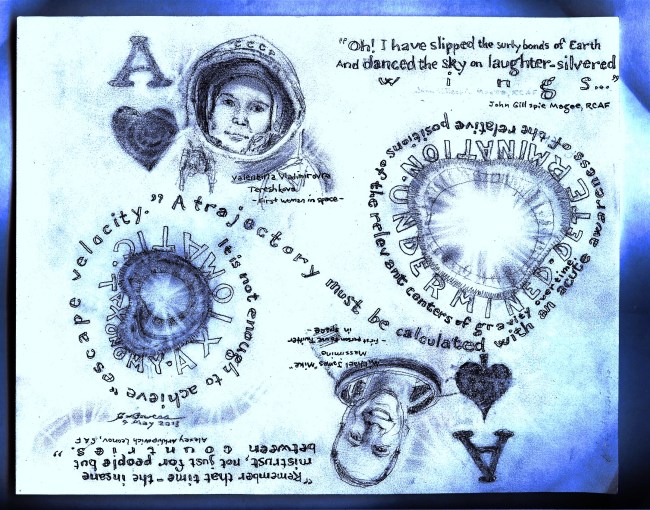 A
CCCP
Valentina Vladimirovna
Tereshkova
-first woman in space-
"Oh! I have slipped the surly bonds of Earth
And danced the sky on laughter-silvered
w i n g s..."
John Gillespie Magee, RCAF
It is not enough to achieve "escape velocity." A trajectory must be calculated with an acute awareness of the relative positions of the relevant centers of gravity over time.
AXIOMATIC.TAXONOMY.
UNDERMINED DETERMINATION.
Michael James "Mike"
Massimino
in space -
A
"Remember that time - the insane
mistrust, not just for people but
between countries."
Alexey Arkhipovich Leonov, SAF
9 May 2013